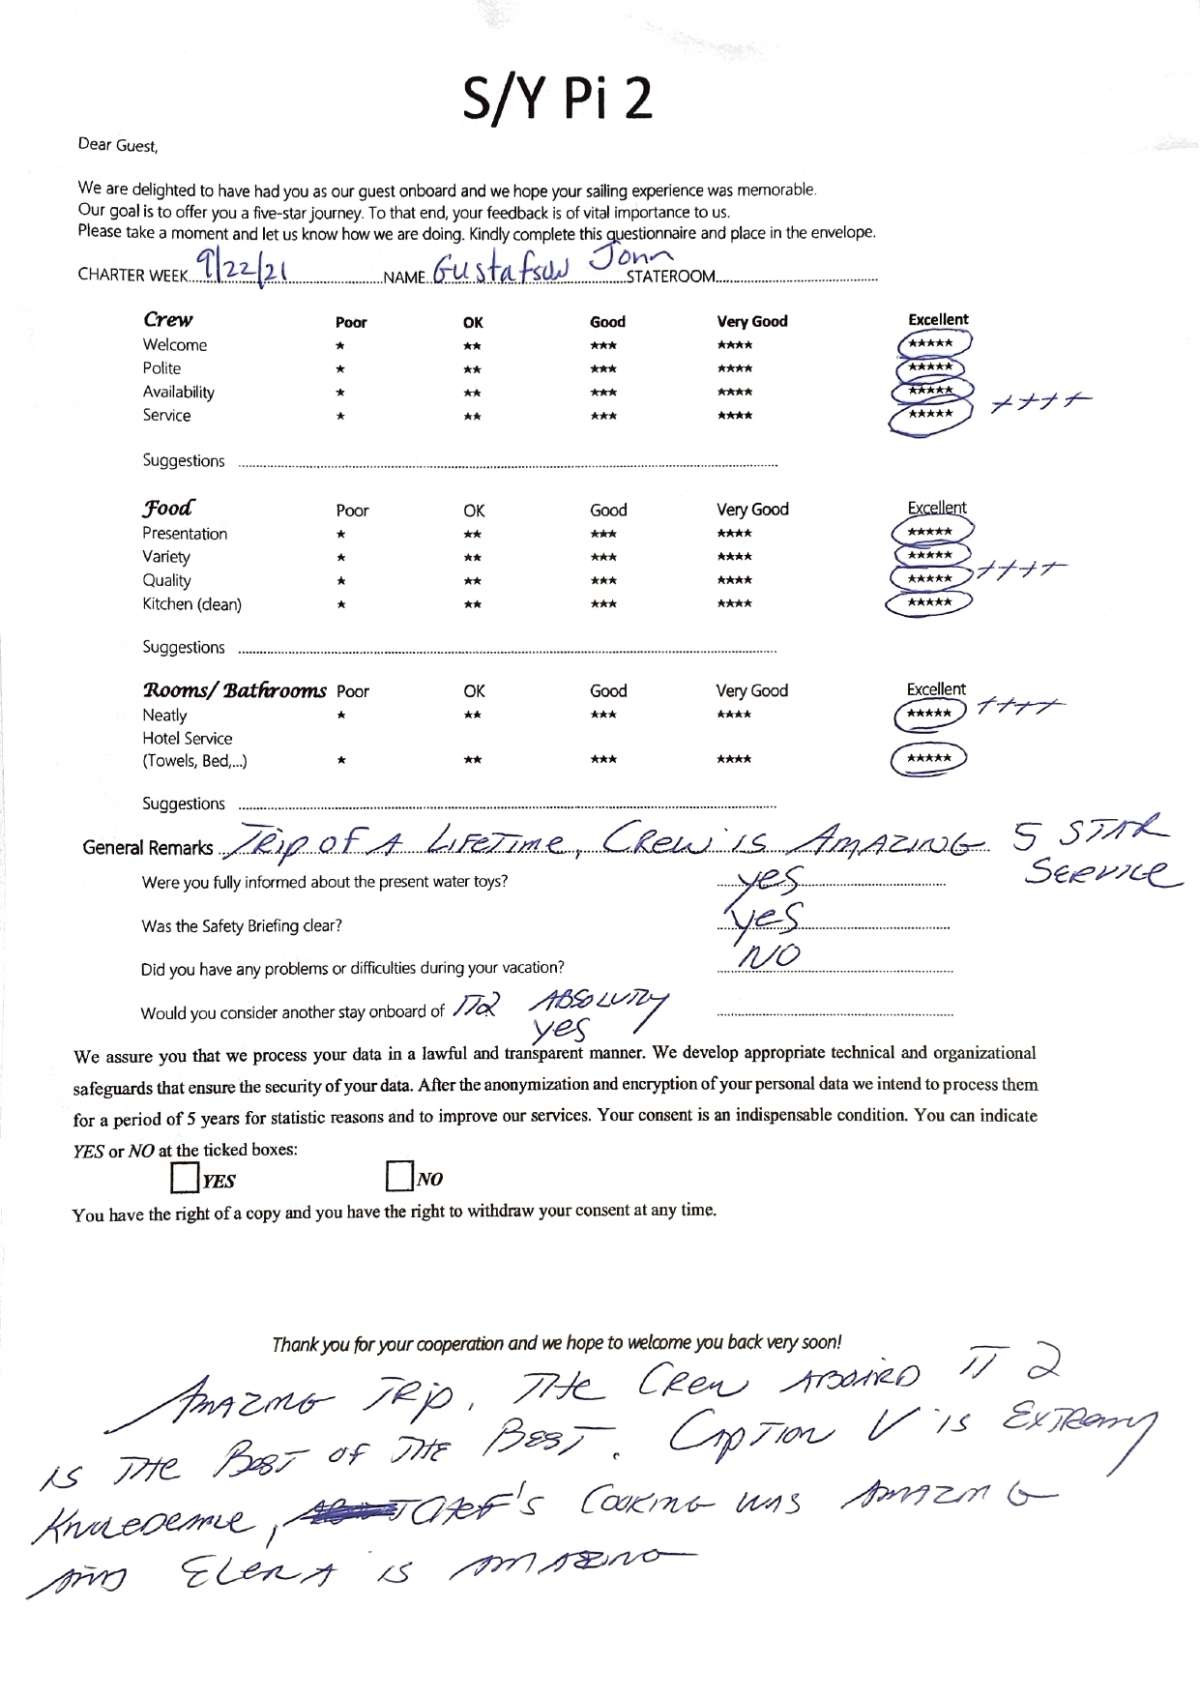 S/Y Pi 2
Dear Guest,
We are delighted to have had you as our guest onboard and we hope your sailing experience was memorable.
Our goal is to offer you a five-star journey. To that end, your feedback is of vital importance to us.
Please take a moment and let us know how we are doing. Kindly complete this questionnaire and place in the envelope.
CHARTER WEEK 9/22/21 NAME Gustafson John STATEROOM
Crew Poor OK Good Very Good Excellent
Welcome ★ ★★ ★★★ ★★★★ ★★★★★
Polite ★ ★★ ★★★ ★★★★ ★★★★★
Availability ★ ★★ ★★★ ★★★★ ★★★★★
Service ★ ★★ ★★★ ★★★★ ★★★★★ ++++
Suggestions
Food Poor OK Good Very Good Excellent
Presentation ★ ★★ ★★★ ★★★★ ★★★★★
Variety ★ ★★ ★★★ ★★★★ ★★★★★
Quality ★ ★★ ★★★ ★★★★ ★★★★★ ++++
Kitchen (clean) ★ ★★ ★★★ ★★★★ ★★★★★
Suggestions
Rooms/ Bathrooms Poor OK Good Very Good Excellent
Neatly ★ ★★ ★★★ ★★★★ ★★★★★ ++++
Hotel Service
(Towels, Bed,...) ★ ★★ ★★★ ★★★★ ★★★★★
Suggestions
General Remarks TRIP OF A LIFETIME, CREW IS AMAZING 5 STAR
SERVICE
Were you fully informed about the present water toys? yes
Was the Safety Briefing clear? yes
Did you have any problems or difficulties during your vacation? NO
Would you consider another stay onboard of π2 ABSOLUTLY
yes
We assure you that we process your data in a lawful and transparent manner. We develop appropriate technical and organizational
safeguards that ensure the security of your data. After the anonymization and encryption of your personal data we intend to process them
for a period of 5 years for statistic reasons and to improve our services. Your consent is an indispensable condition. You can indicate
YES or NO at the ticked boxes:
YES NO
You have the right of a copy and you have the right to withdraw your consent at any time.
Thank you for your cooperation and we hope to welcome you back very soon!
AMAZING TRIP. THE CREW ABOARD π 2
IS THE BEST OF THE BEST. CAPTION V is EXTREMLY
CHEF'S COOKING WAS AMAZING
AND ELENA IS AMAZING